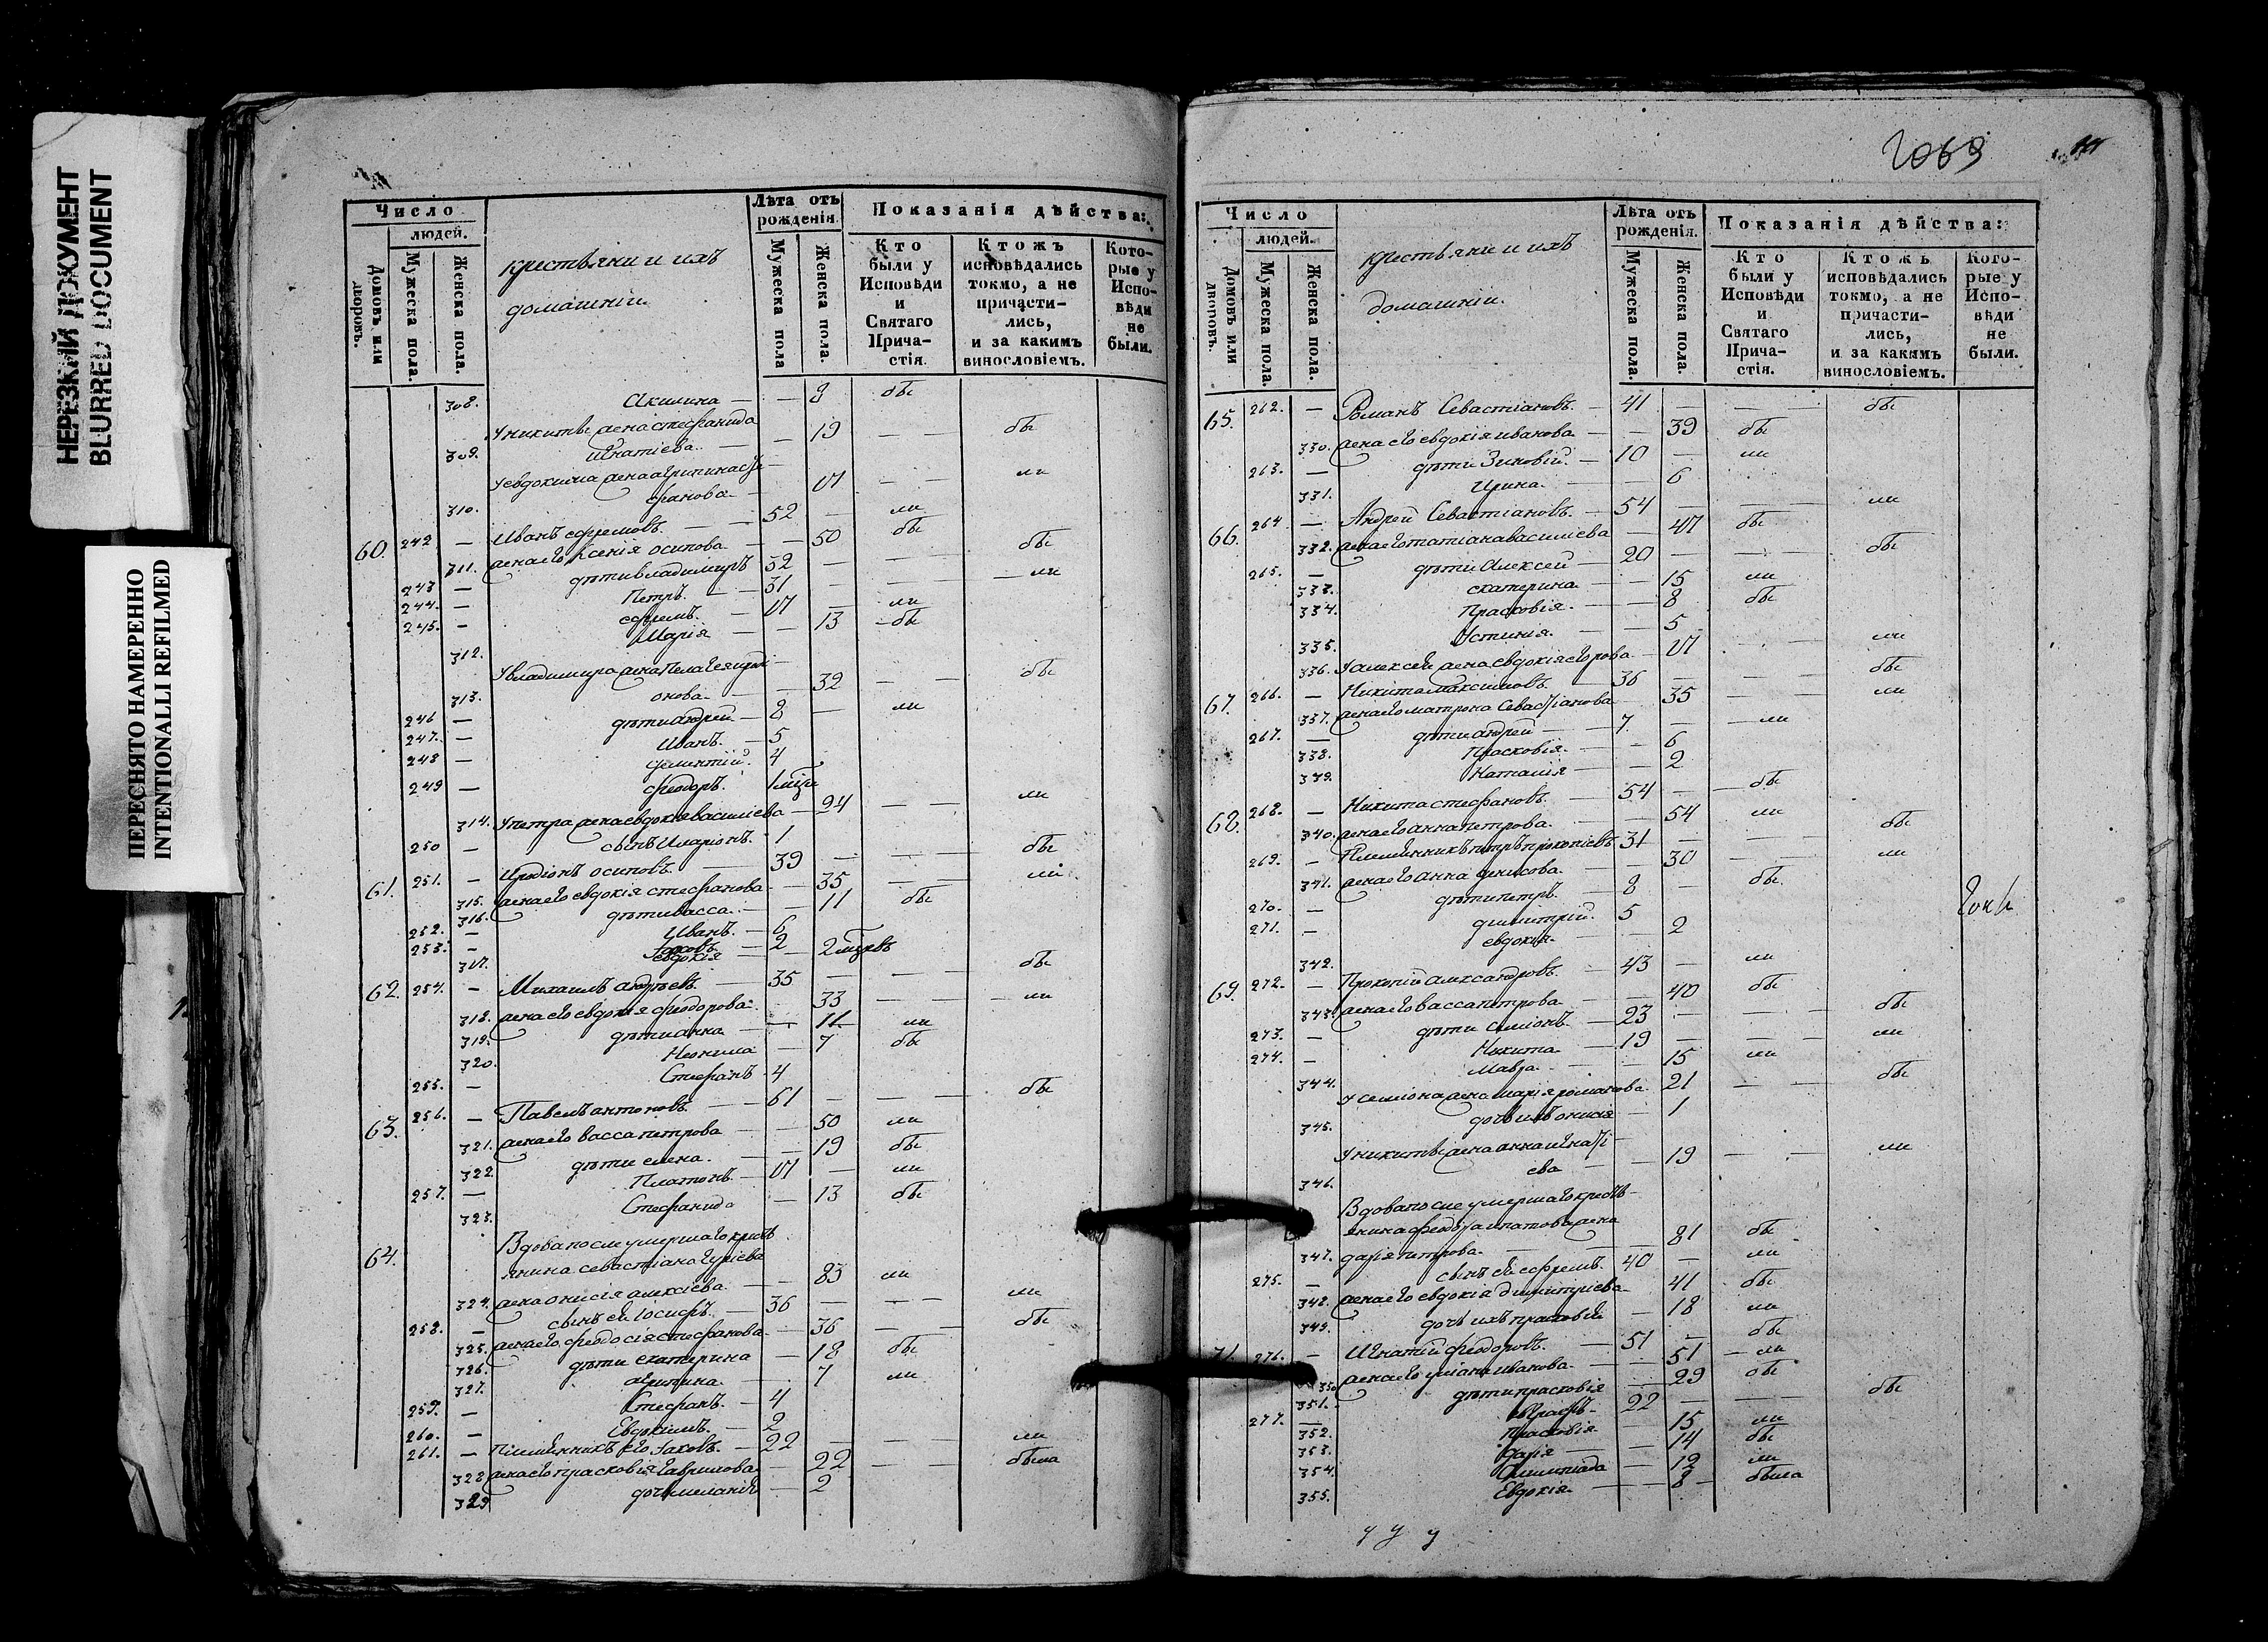 НЕРЕЗКИЙ ДОКУМЕНТ
BLURRED DOCUMENT
ПЕРЕСНЯТО НАМЕРЕННО
INTENTIONALLI REFILMED
Число
людей.
Домовъ или дворовъ.
Мужеска пола.
Женска пола.
крестьяни и ихъ
домашніи.
Лѣта отъ рожденія.
Мужеска пола
Женска пола.
Показанія дѣйства:
Кто были у Исповѣди и Святаго Прича-стія.
Ктожъ исповѣдались токмо, а не причасти-лись, и за какимъ винословіемъ.
Кото-рые у Испо-вѣди не были.
308. Акилина — — 8 бы
у никиты жена стефанида
309. Игнатіева — — 19 — — бы
у евдокима жена агрипина
310. фанова — 17 — — ли
60. 242 — Иванъ ефремовъ — — 52 — ли
311. жена его Ксенія осипова — — 50 бы
243 — дѣти владимиръ 32 — — бы
244. — Петръ. — — 31 — — ли
245. — ефремъ. — 17 — ли
312. Марія — — 13 — бы
у владимира жена Пелагея
313. онова — — 32 — — бы
246 — дѣти андрей — 8 — ли
247. — Иванъ. — 5
248 — 4
249 — феодоръ. 1 мѣся
314. у петра жена евдокія василіева — 24 — — ли
250 — сынъ Иларіонъ. 1
61. 251. — Иродіонъ осиповъ. — 39 — — — бы
315. жена его евдокія стефанова — 35 — — ли
316. дѣти васса. — — 11 бы
252. — Иванъ — 6
253. — Іаковъ — 2
317. евдокія — — 2 мѣсяцъ
62. 254. — Михаилъ андреевъ. — 35 — — — бы
318. жена его евдокія феодорова — 33 — — ли
319. дѣти анна — — 11 ли
320. Неонила — 7 бы
255. — Стефанъ 4
63. 256. — Павелъ антоновъ — — 61 — — — бы
321. жена его васса петрова — — 50 ли
322 дѣти елена. — — 19 бы
257. — Платонъ — 17 — ли
323. Стефанида — 13 бы
64. Вдова после умершаго крест
янина севастіана гуріева
324. жена онисія алексіева — — 83 ли
258. — сынъ ея Іосифъ. — 36 — — — ли
325. жена его феодосія стефанова — 36 — — бы
326. дѣти екатерина — 18 бы
327. агрипина. — — 7 ли
259. — Стефанъ. — 4
260. — Евдокимъ. — 2
261. — Племянникъ его Іаковъ. — 22 — — — ли
328 жена его прасковія гаврилова — 22 — — была
329 дочь меланія — 2
2069
Число
людей.
Домовъ или дворовъ.
Мужеска пола.
Женска пола.
крестьяни и ихъ
домашніи.
Лѣта отъ рожденія.
Мужеска пола.
Женска пола.
Показанія дѣйства:
Кто были у Исповѣди и Святаго Прича-стія.
Ктожъ исповѣдались токмо, а не причасти-лись, и за какимъ винословіемъ.
Кото-рые у Испо-вѣди не были.
65. 262. — Романъ Севастіановъ. — 41 — — бы
330. жена его евдокія иванова — — 39 бы
263. — дѣти Зиновій. — 10 — ли
331. Ирина. — — 6
66. 264 — Андрей Севастіановъ. — 54 — — ли
332. жена его татіана василіева — 47 бы
265. — дѣти Алексей — 20 — — бы
333. екатерина — — 15 ли
334. Прасковія. — — 8 бы
335. Устинія. — — 5
336. у алексея жена евдокія егорова — 17 — — ли
67. 266. — Никита максимовъ — 36 — — — бы
337. жена его матрона Севастіанова 35 — — ли
267. — дѣти андрей — 7. — — ли
338. Прасковія. — — 6
339. Наталія — — 2
68. 268. — Никита стефановъ. — 54 — — бы
340. жена его анна петрова. — — 54 ли
269. — Племянникъ петръ прокопіевъ 31 — — — бы
341. жена его анна денисова — — 30 — — ли
270. — дѣти петръ. — 8 — бы
271. — димитрій. 5
342. евдокія. — — 2
69. 272. — Прокопій александровъ. — 43 — ли
343. жена его васса петрова — — 40 бы
273. — дѣти Симіонъ. — 23 — — — бы
274. — Никита — 19 — — — ли
344. Мавра — — 15 ли
у семіона жена марія романова. 21 — — бы
345. дочь ихъ онисія — 1
у никиты жена анна игнаті
346. ева — — 19 — — ли
Вдова после умершаго крестъ—
янина феодора ипатова жена
347. дарія петрова — — — 81 бы
275. — сынъ ея ефремъ. 40 — ли
348. жена его евдокіа димитріева — 41 бы
349. дочь ихъ прасковія — 18 ли
71. 276. — Игнатій феодоровъ. — 51 — бы
350 жена его уліана иванова. — — 51 — ли
351. дѣти прасковія — 29 бы
277. — 22 — — бы
352. Прасковія — 15 ли
353. Дарія — — 14 бы
354. Олимпіада — 12 ли
355. Евдокія. — — 8 — была